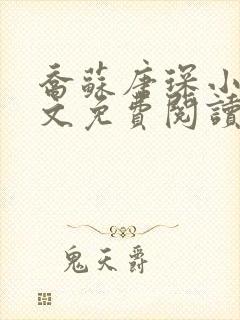 喬蘇唐琛小
文免費閱讀
鬼天爵